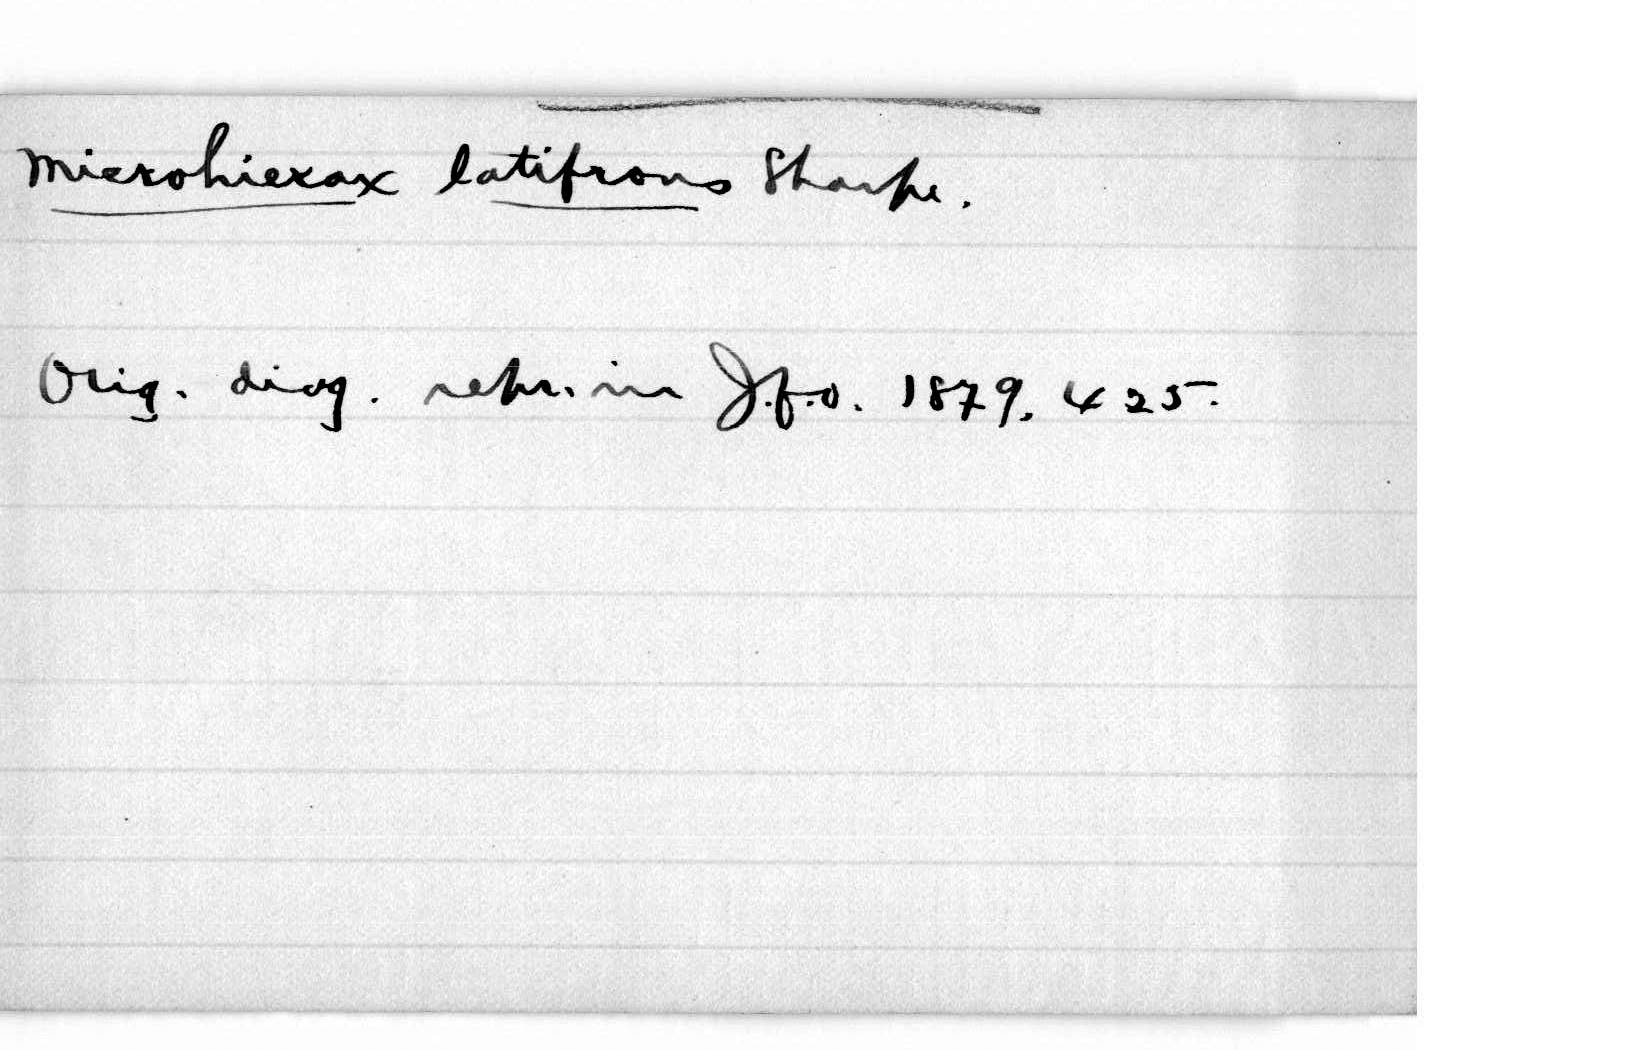 Microhierax latifrons Sharpe.
Orig. diag. repr. in J.f.O. 1879, 425.